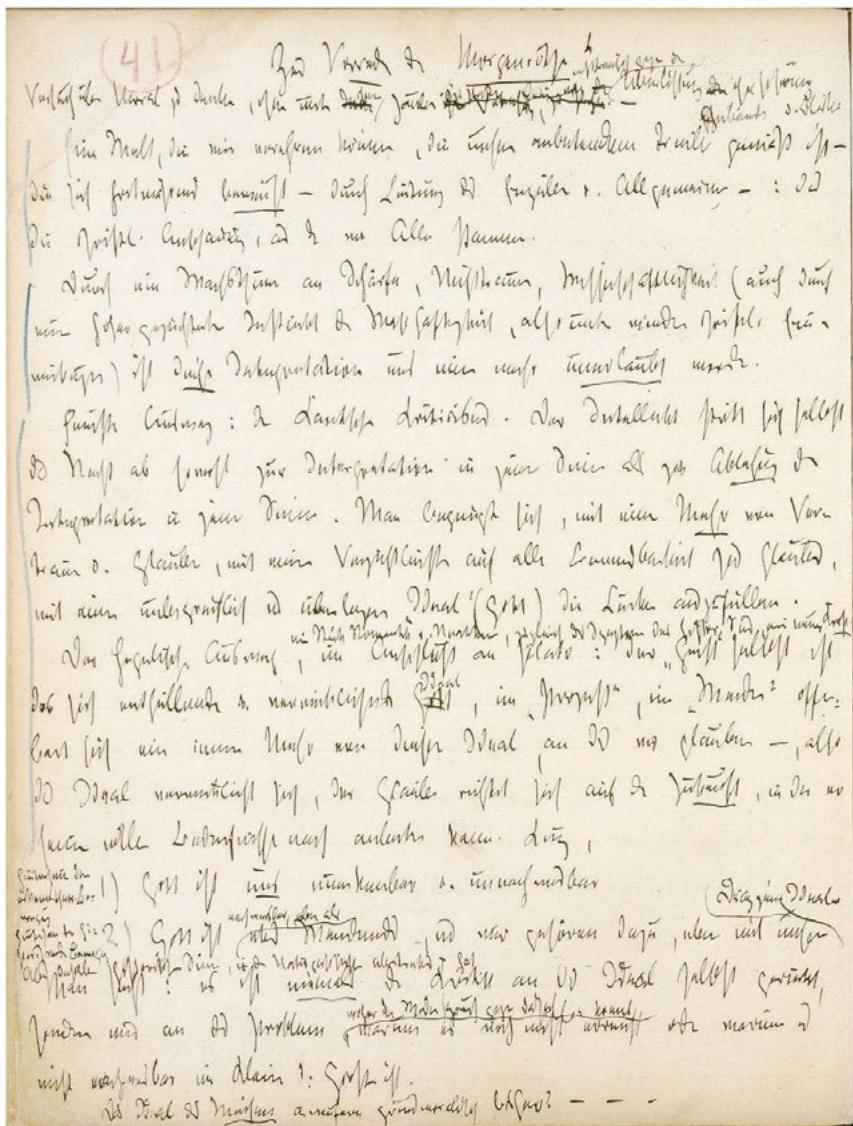 41
Zur Vorrede der Morgenröthe
Versuch über Moral zu denken, ohne unter ihrem Zauber zu stehen, mißtrauisch gegen die Überlistung ihrer schönen Gebärden u. Blicke
Eine Welt, die wir verehren können, die unserem anbetenden Triebe gemäß ist –
die sich fortwährend beweist – durch Leitung des Einzelnen u. Allgemeinen – : dies
die christl. Anschauung, aus der wir Alle stammen.
Durch ein Wachsthum an Schärfe, Mißtrauen, Wissenschaftlichkeit (auch durch
einen höher gerichteten Instinkt der Wahrhaftigkeit, also unter wieder christl. Ein-
wirkungen) ist diese Interpretation uns immer mehr unerlaubt worden.
Feinster Ausweg: der Kantische Kriticismus. Der Intellekt stritt sich selbst
das Recht ab sowohl zur Interpretation in jenem Sinne als zur Ablehnung der
Interpretation in jenem Sinne. Man begnügt sich, mit einem Mehr von Ver-
trauen u. Glauben, mit einem Verzichtleisten auf alle Beweisbarkeit seines Glaubens,
mit einem unbegreiflichen und überlegenen "Ideal" (Gott) die Lücke auszufüllen.
ein Stück Romantik u. Reaktion, zugleich das Symptom des histor. Sinns, einer neuen Kraft
Der Hegelische Ausweg, im Anschluß an Plato: der „Geist" selbst ist
das sich enthüllende u. verwirklichende Ideal, im „Prozeß", im „Werden" offen-
bart sich ein immer Mehr von diesem Ideal, an das wir glauben –, also
das Ideal verwirklicht sich, der Glaube richtet sich auf die Zukunft, in der er
seinem edlen Bedürfnisse nach anbeten kann. Kurz,
1) Gott ist uns unerkennbar u. unnachweisbar
2) Gott ist nachweisbar, aber als etwas Werdendes, und wir gehören dazu, eben mit unsrem
Drang zum Idealen
Man sieht: es ist niemals die Kritik an das Ideal selbst gerückt,
sondern nur an das Problem, woher der Widerspruch gegen dasselbe kommt, warum es noch nicht erreicht oder warum es
nicht nachweisbar im Kleinen u. Großen ist.
Das Ideal des Weisen in wiefern grundmoralisch bisher? – – –